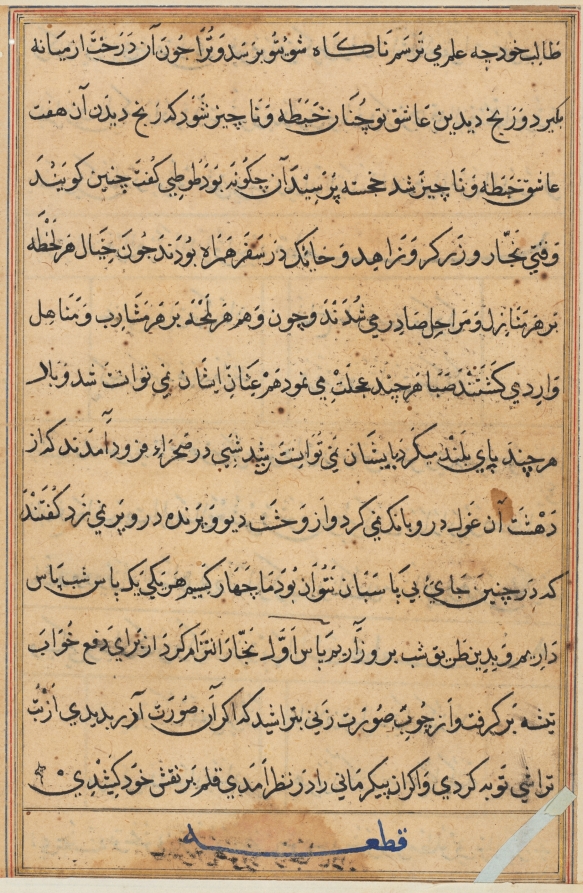 طالب خود چه علم می ترسم ناکاه شوی تو برسد و ترا چون آن درخت از میانه
بکیرد و ز رنج دیدین عاشق تو چنان خبطه و ناچیز شود که ز رنج دیدن آن هفت
عاشق خبطه و ناچیز شد خجسته پرسید آن چکونه بود طوطی کفت چنین کویند
وقتی نجار و زرکر و زاهد و حائک در سفر همراه بودند چون خیال هر لحظه
بر هر منازل و مراحل صادر می شدند و چون وهم هر لمحه بر هر مشارب و مناهل
واردی کشتند صبا هرچند عجلت می نمود هم عنان ایشان نمی توانست شد و بلا
هرچند پای بلند میکرد بایشان نمی توانست رسید شبی در صحراء فرود آمدند که از
دهشت آن غول درو بانک نمی کرد و از وحشت دیو و پرنده درو پر نمی زد کفتند
که در چنین جای بی پاسبان نتوان بود ما چهار کسیم هر یکی یک پاس شب پاس
داریم و بدین طریق شب بروز آریم پاس اول نجار التزام کرد از برای دفع خواب
تیشه برکرفت و از چوب صورت زنی بتراشید که اکر آن صورت آذر بدیدی از بت
تراشی توبه کردی و اکر آن پیکر مانی را در نظر آمدی قلم بر نقش خود کشیدی
قطعه